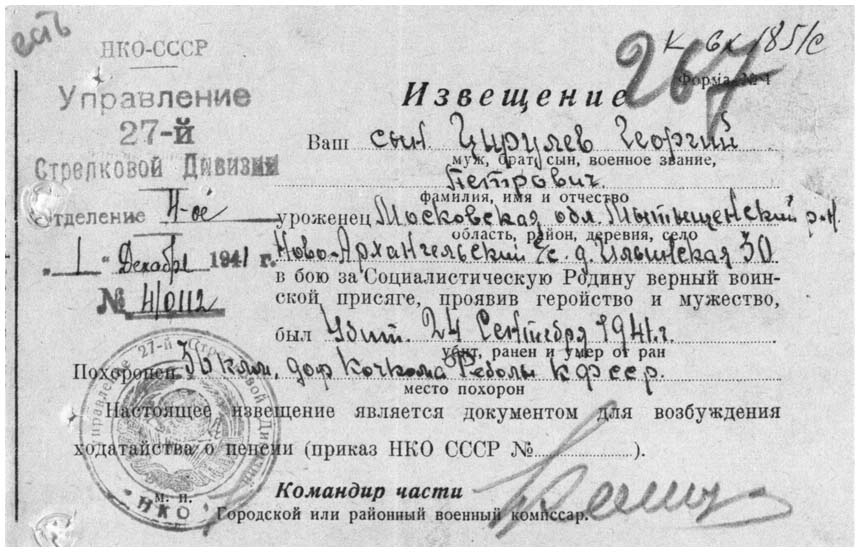 есть
НКО-СССР
Управление
27-й
Стрелковой Дивизии
Отделение 4-ое
„1“ Декабря 1941 г.
№ 4/0112
к вх 185/с
267
Форма № 1
Извещение
Ваш сын Цирулев Георгий
муж, брат, сын, военное звание,
Петрович.
фамилия, имя и отчество
уроженец Московская обл. Мытыщенский р-н.
область, район, деревня, село
Ново-Архангельский с/с. д. Ильинская 30
в бою за Социалистическую Родину верный воин-
ской присяге, проявив геройство и мужество,
был Убит. 24 Сентября 1941 г.
убит, ранен и умер от ран
Похоронен 36 клм. дор Кочкома Реболы КФССР.
место похорон
Настоящее извещение является документом для возбуждения
ходатайства о пенсии (приказ НКО СССР № ).
Управление 27-й Стрелковой Дивизии
НКО
м. п.
Командир части
Городской или районный военный комиссар.